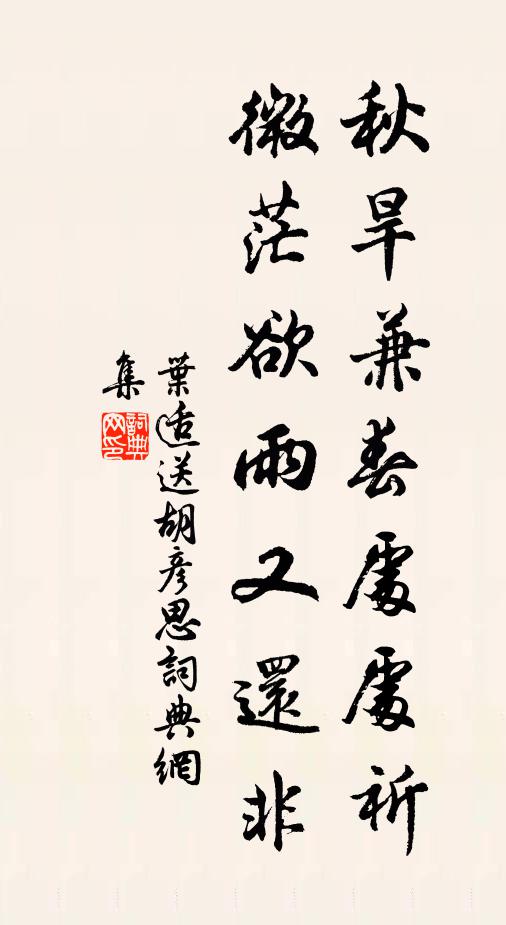 秋旱兼春處處祈
微茫欲雨又還非
葉適送胡彥思詞典網
集
詞典網印